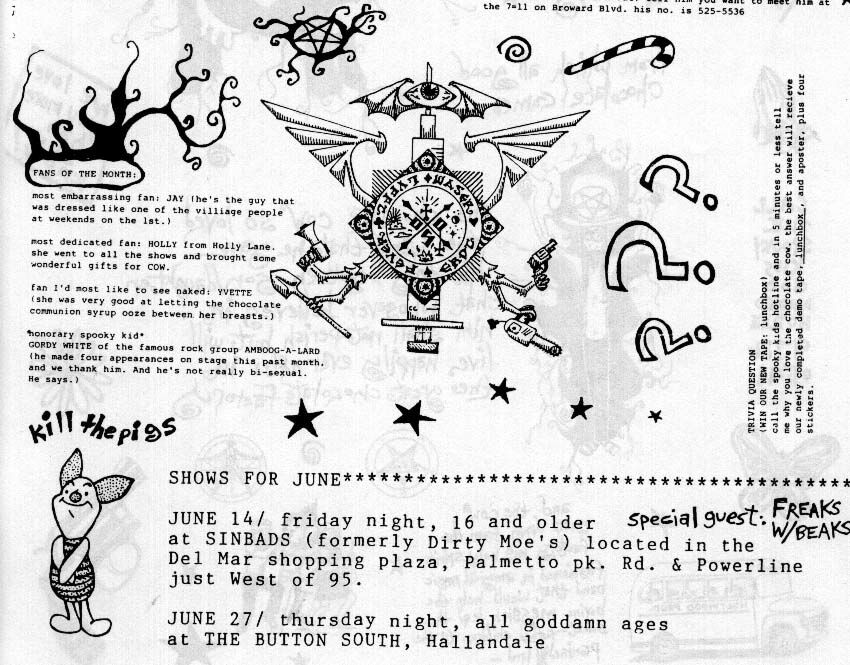 you want to meet him at
the 7=11 on Broward Blvd. his no. is 525-5536
FANS OF THE MONTH:
most embarrassing fan: JAY (he's the guy that
was dressed like one of the villiage people
at weekends on the 1st.)
most dedicated fan: HOLLY from Holly Lane.
she went to all the shows and brought some
wonderful gifts for COW.
fan I'd most like to see naked: YVETTE
(she was very good at letting the chocolate
communion syrup ooze between her breasts.)
*honorary spooky kid*
GORDY WHITE of the famous rock group AMBOOG-A-LARD
(he made four appearances on stage this past month,
and we thank him. And he's not really bi-sexual.
He says.)
TRIVIA QUESTION
(WIN OUR NEW TAPE: lunchbox)
call the spooky kids hotline and in 5 minutes or less tell
me why you love the chocolate cow. the best answer will recieve
our newly completed demo tape, lunchbox , and aposter, plus four
stickers.
kill the pigs
SHOWS FOR JUNE******************************************
JUNE 14/ friday night, 16 and older
special guest: FREAKS
W/BEAKS
at SINBADS (formerly Dirty Moe's) located in the
Del Mar shopping plaza, Palmetto pk. Rd. & Powerline
just West of 95.
JUNE 27/ thursday night, all goddamn ages
at THE BUTTON SOUTH, Hallandale